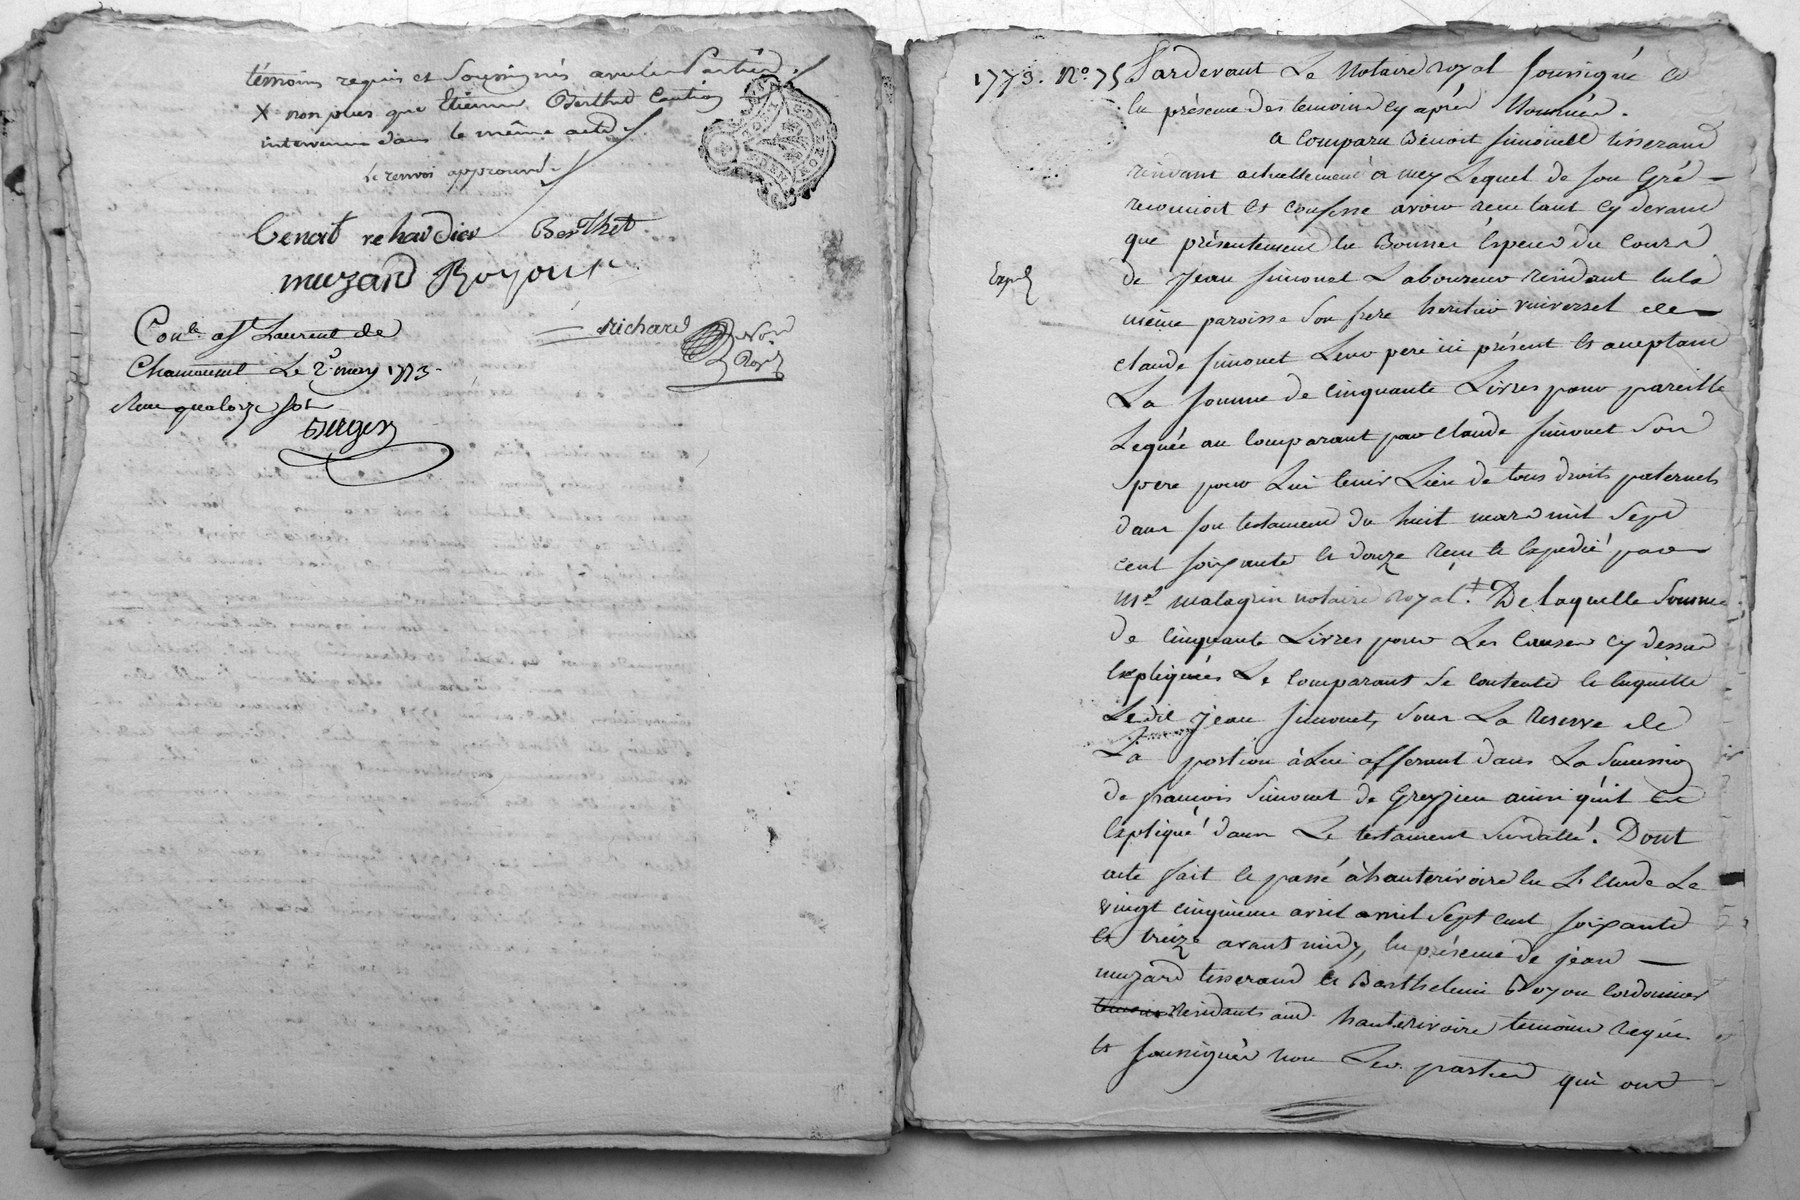 témoins requis et soussignés avec les parties
X non plus que Etienne Berthet caution
intervenue dans le même acte
Le renvoi approuvé.
Benoit rehardier Berthet
muzard Boyoud
richard Nore
Royal
Con.le a St Laurent de
Chamousset Le 2. may 1773.
Reçu quatorze sols
Berger
GDE LYON
1773. No. 75 Pardevant Le Notaire royal soussigné et
en présence des temoins cy après Nommés.
a comparu Benoit simonet tisserand
residant actuellement à mey Lequel de son Gré
reconnoit et confesse avoir reçu tant cy devant
que présentement en Bonnes Especes du Cours
Expé
de Jean simonet Laboureur residant en la
même paroisse son frere heritier universel de
claude simonet Leur pere ici présent et acceptant
La somme de cinquante Livres pour pareille
Leguée au comparant par claude simonet son
pere pour Lui tenir Lieu de tous droits paternels
dans son testament du huit mars mil sept
cent soixante et douze reçu et Expedié par
Me. malagrin notaire royal. De laquelle somme
de cinquante Livres pour Les causes cy dessus
Expliquées Le comparant se contente et en quitte
Ledit jean simonet, sous La reserve de
La portion à Lui afferant dans La succession
de françois simonet de Greyzieu ainsi qu'il est
Expliqué dans Le testament susdatté. Dont
acte fait et passé à hauterivoire en L'Etude Le
vingt cinquieme avril mil sept cent soixante
et treize avant midy, en présence de jean
muzard tisserand et Barthelemi Boyou cordonnier
temoins residants aud. hauterivoire temoins requis
et soussignés non Les parties qui ont